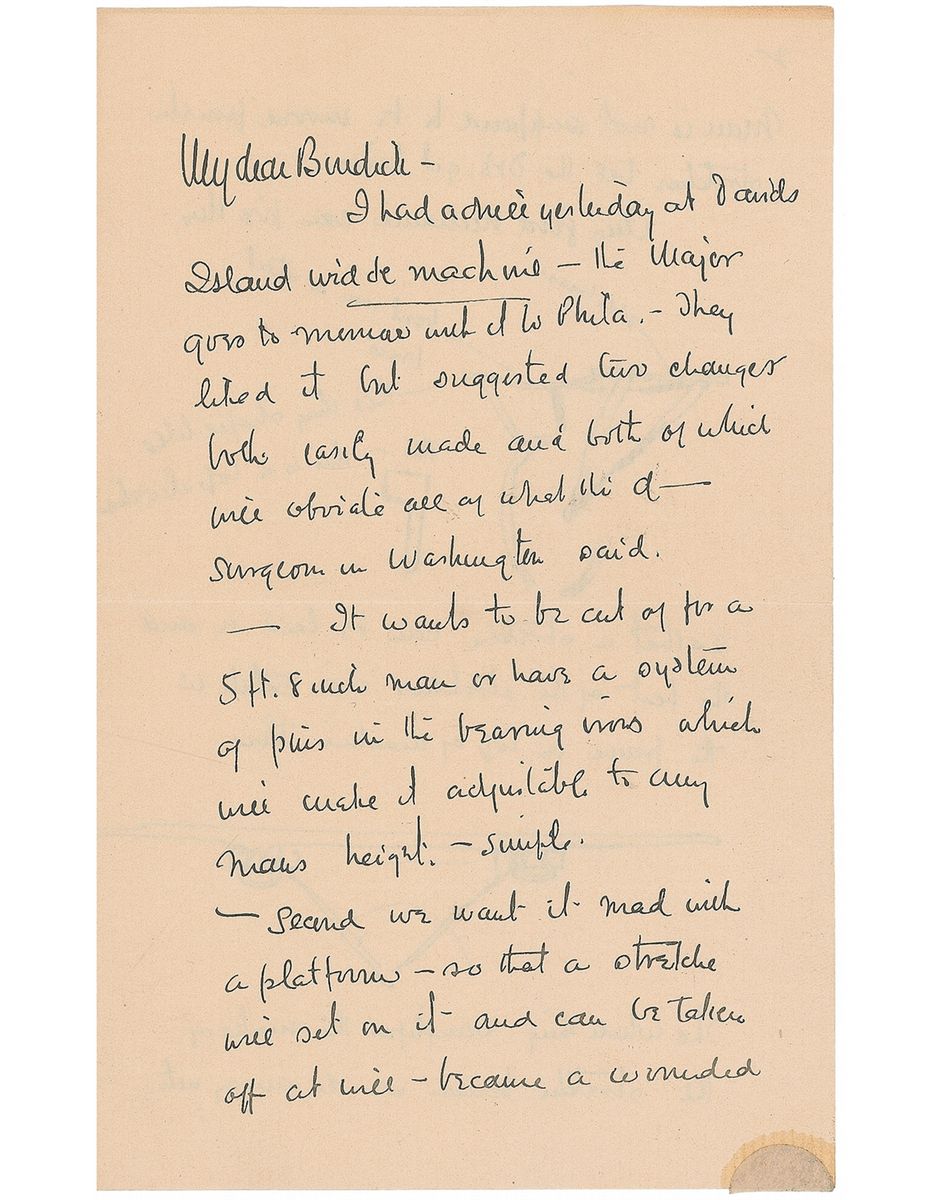 My dear Burdick –
I had a drill yesterday at Davids
Island wid de machine – the Major
goes to morrow with it to Phila. – They
liked it but suggested two changes
both easily made and both of which
will obviate all of what the d—
surgeon in Washington said.
— It wants to be cut of for a
5 ft. 8 inch man or have a system
of pins in the bearing irons which
will make it adjustable to any
mans height. – Simple.
– Second we want it mad with
a platform – so that a stretche
will set on it and can be taken
off at will – because a wounded